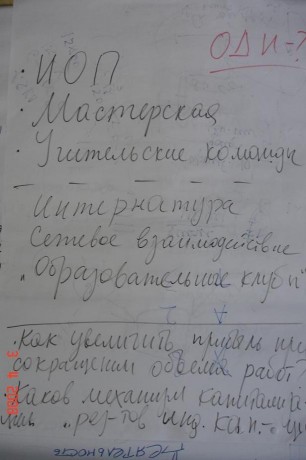 ОДИ-
· ИОП
· Мастерская
· Учительские команды
Интернатура
Сетевое взаимодействие
„Образовательные клубы"
· Как увеличить прибыль при
сокращении объема работ?
· Каков механизм капитализа-
ции „рез-тов инд. кап.-
деятельность